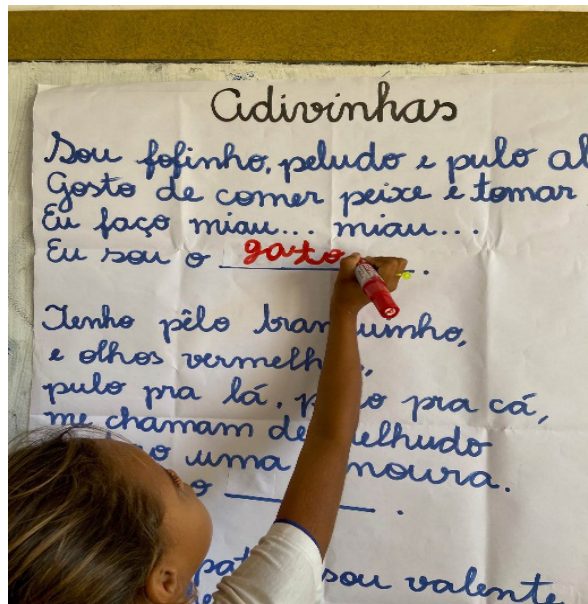 Adivinhas
Sou fofinho, peludo e pulo al
Gosto de comer peixe e tomar
Eu faço miau... miau...
Eu sou o gato.
Tenho pêlo bran uinho,
e olhos vermelh ,
pulo pra lá, p o pra cá,
me chamam de elhudo
uma noura.
o ______ .
pat sou valente